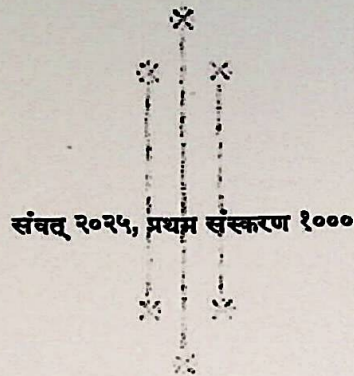 संवत् २०२५, प्रथम संस्करण १०००